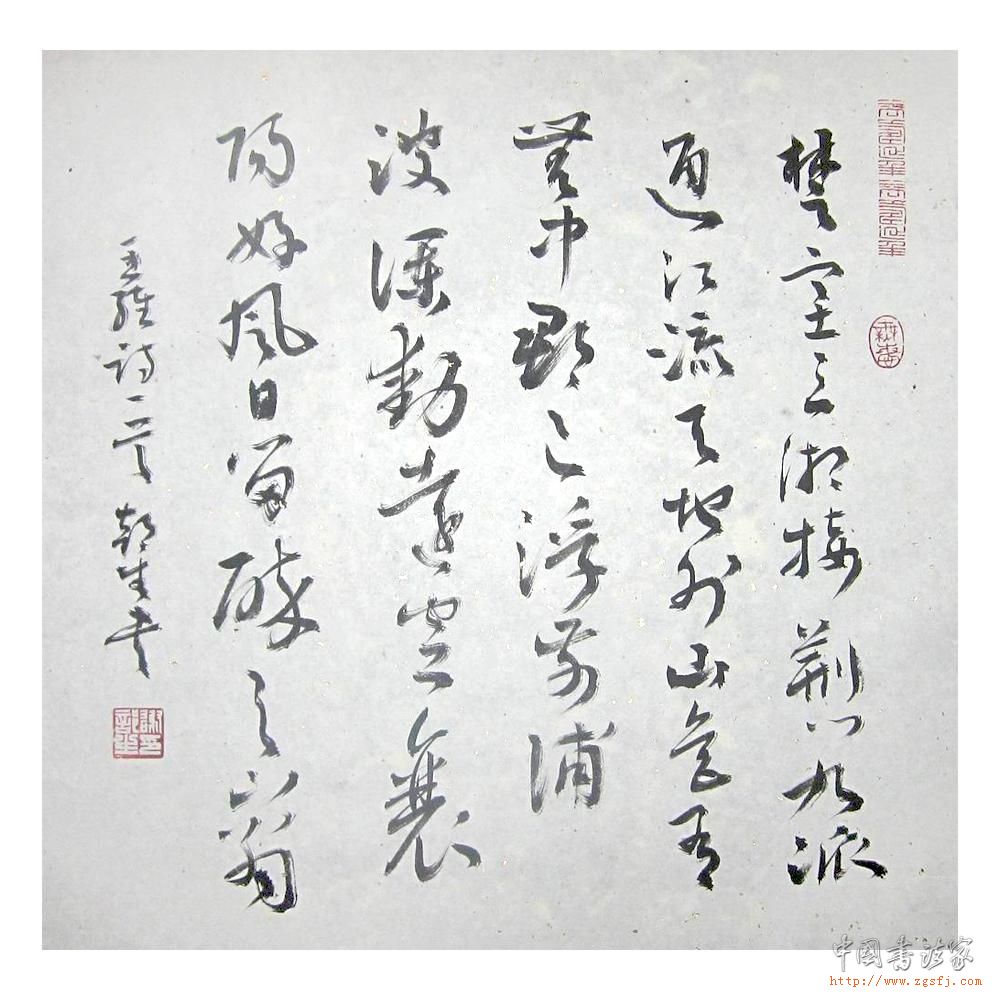 楚塞三湘接荆門九派
通江流天地外山色有
無中郡邑浮前浦
波瀾動遠空襄
陽好風日留醉与山翁
王維詩一首 生書
中國書法家
http://www.zgsfj.com